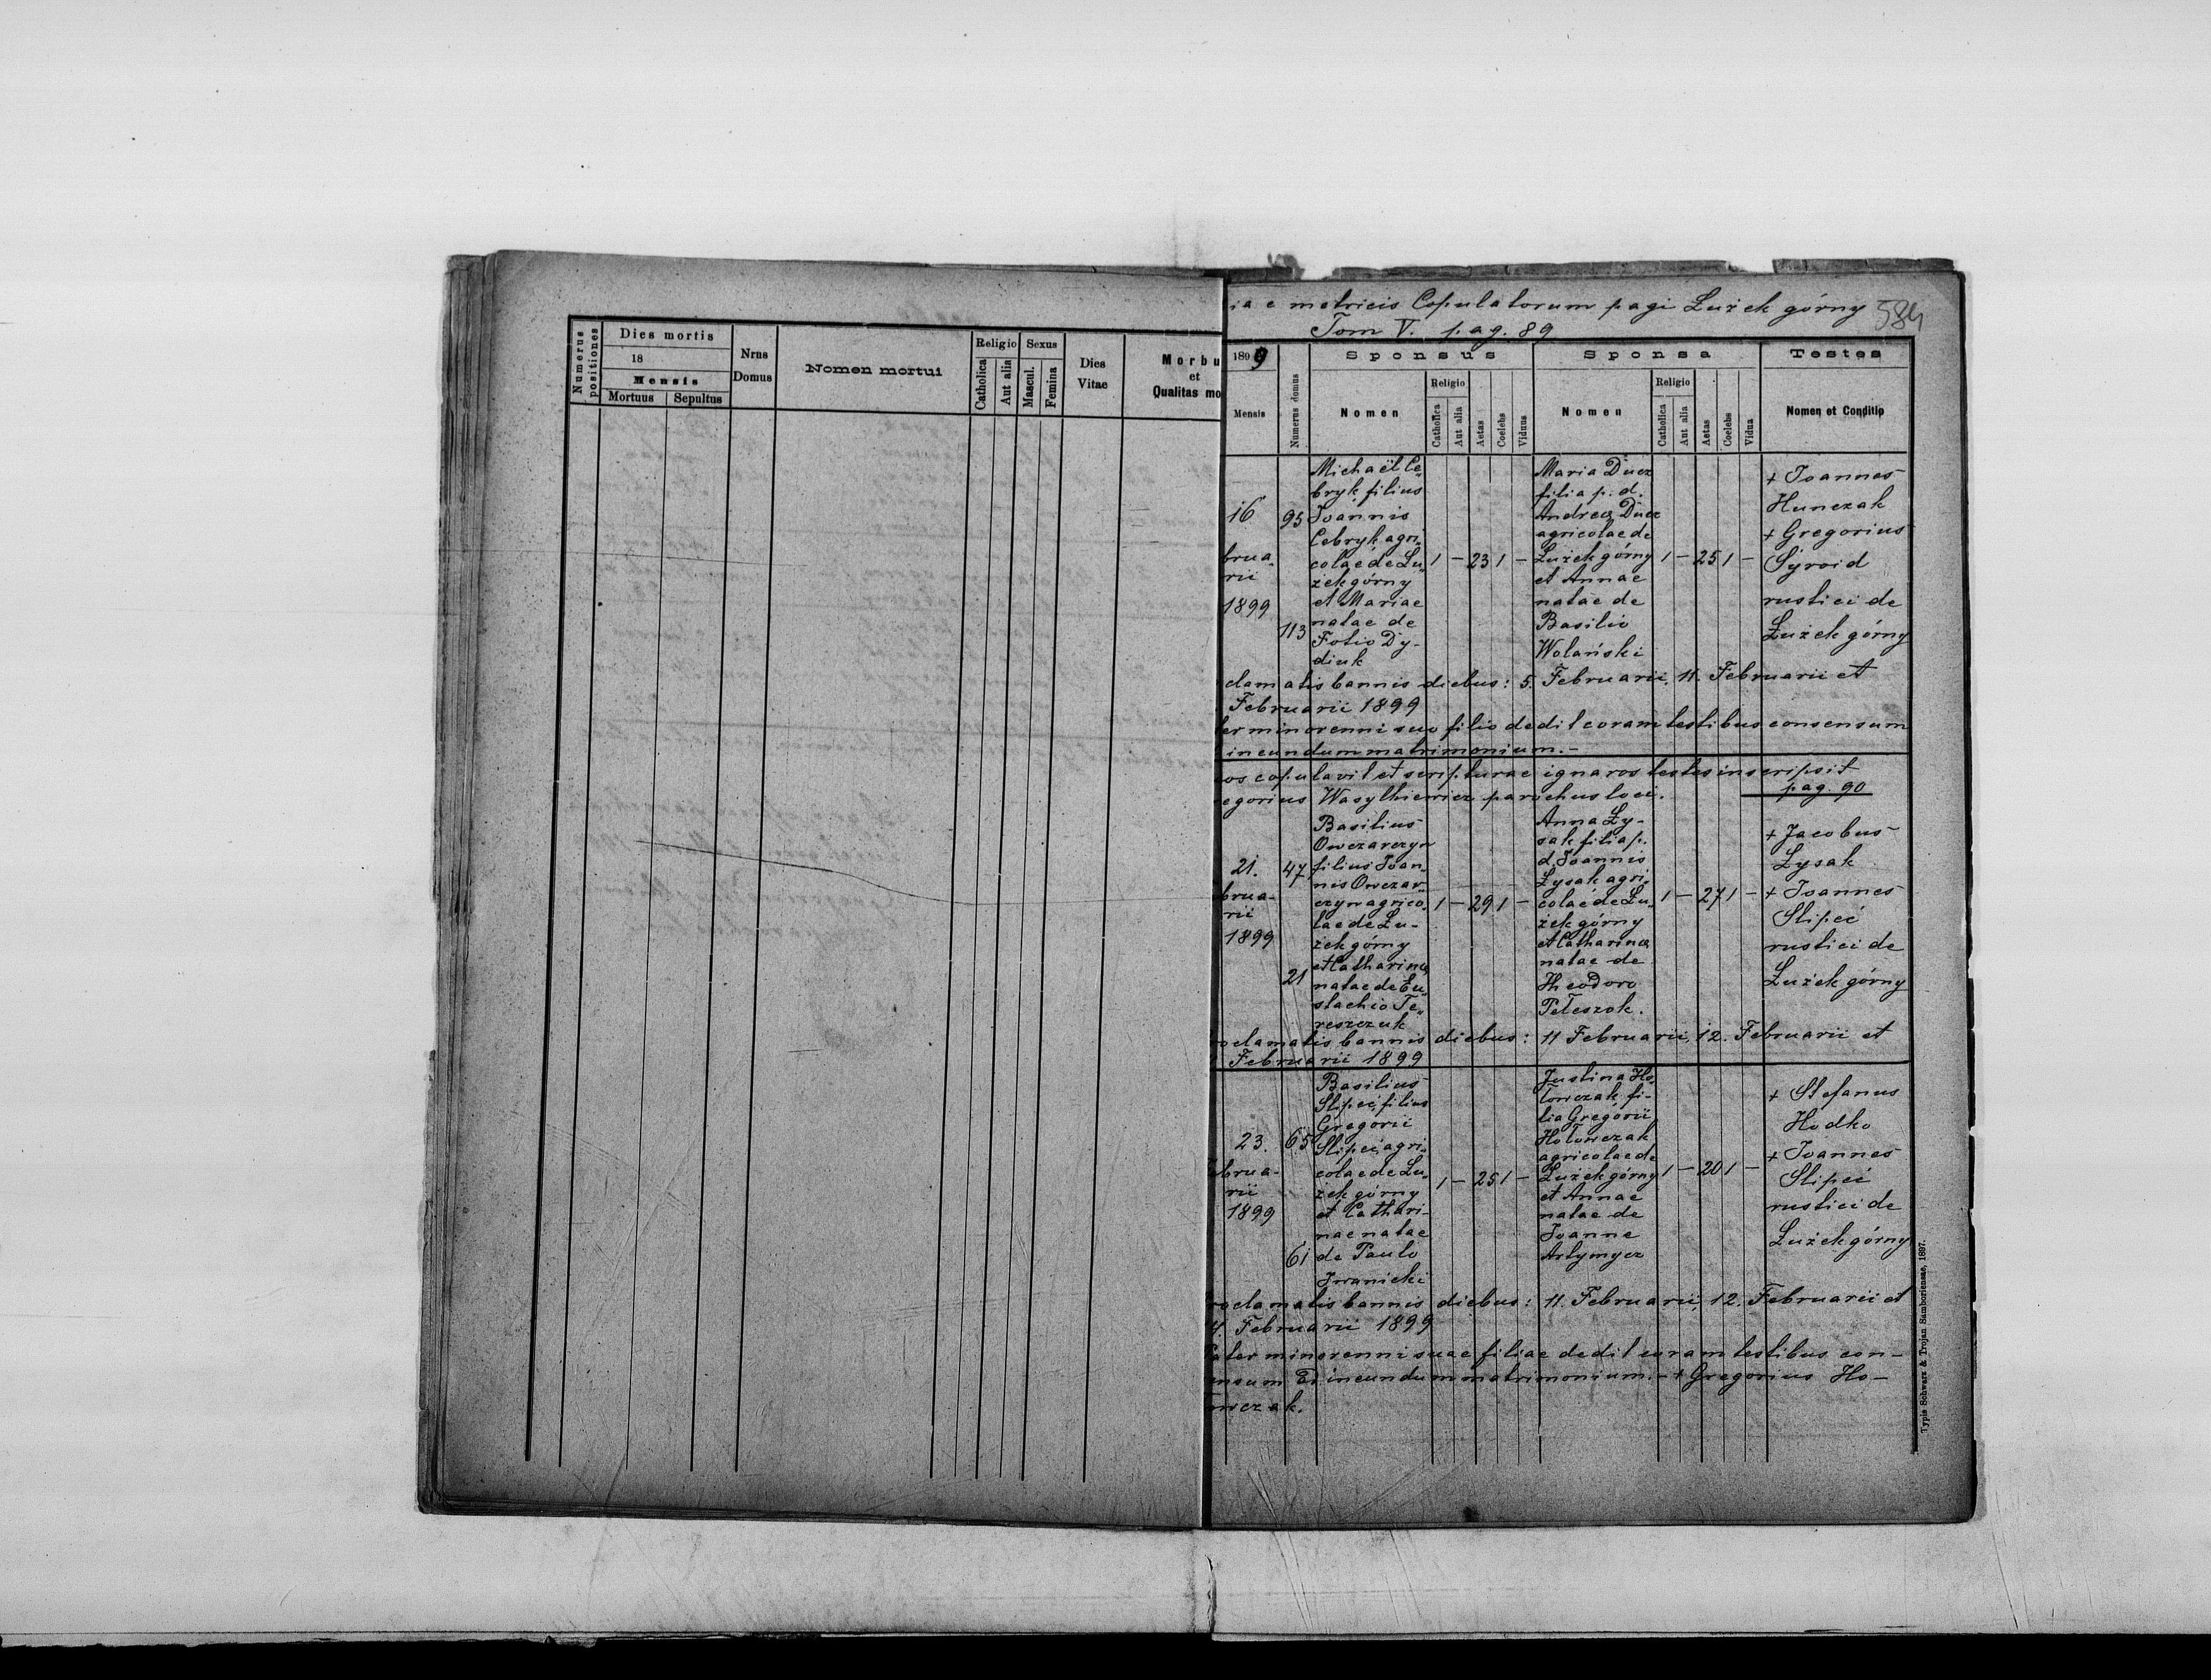 Numerus positiones
Dies mortis
18
Mensis
Mortuus Sepultus
Nrus Domus
Nomen mortui
Religio
Catholica
Aut alia
Sexus
Mascul.
Femina
Dies Vitae
Morbu
et
Qualitas mo
ia e metricis Copulatorum pagi Łużek górny
584
Tom V. pag. 89
1899
Mensis
Numerus domus
Sponsus
Nomen
Religio
Catholica
Aut alia
Aetas
Coelebs
Viduus
Sponsa
Nomen
Religio
Catholica
Aut alia
Aetas
Coelebs
Vidua
Testes
Nomen et Conditio
16
brua-
rii
1899
95
113
Michaël Ce„
bryk filius
Joannis
Cebryk, agri„
colae de Łu„
żek górny
et Mariae
natae de
Fotio Dy-
diuk
1 – 23 1 –
Maria Ducz
filia p. d.
Andreae Ducz
agricolae de
Łużek górny
et Annae
natae de
Basilio
Wolański
1 – 25 1 –
+ Joannes
Hunczak
+ Gregorius
Syroid
rustici de
Łużek górny
clamatis bannis diebus: 5. Februarii, 11. Februarii et
Februarii 1899
ter minorenni suo filio dedit coram testibus consensum
ineundum matrimonium.–
os copulavit et scripturae ignaros testes inscripsit
egorius Wasylkiewicz parochus loci.
pag. 90
21.
brua-
rii
1899
47
21
Basilius
Owczarczyn
filius Joan„
nis Owczar„
czyn agrico„
lae de Łu-
żek górny
et Catharinae
natae de Eu„
stachio Te„
reszczuk
1 – 29 1 –
Anna Ły-
sak filia p.
d. Joannis
Łysak agri„
colae de Łu„
żek górny
et Catharinae
natae de
Theodoro
Peteszok.
1 – 27 1 –
+ Jacobus
Łysak
+ Joannes
Slipeć
rustici de
Łużek górny
oclamatis bannis diebus: 11 Februarii, 12. Februarii et
Februarii 1899
23.
ebrua-
rii
1899
65
61
Basilius
Slipeć, filius
Gregorii
Slipeć, agri„
colae de Łu„
żek górny
et Cathari-
nae natae
de Paulo
Iwanicki
1 – 25 1 –
Justina Ho„
łowczak fi-
lia Gregorii
Hołowczak
agricolae de
Łużek górny
et Annae
natae de
Joanne
Artymycz
1 – 20 1 –
+ Stefanus
Hodko
+ Joannes
Slipeć
rustici de
Łużek górny
roclamatis bannis diebus: 11. Februarii, 12. Februarii et
Februarii 1899
Pater minorenni suae filiae dedit coram testibus con-
ensum ineundum matrimonium.– + Gregorius Ho-
łowczak.
Typis Schwarz & Trojan Samboriensae, 1897.